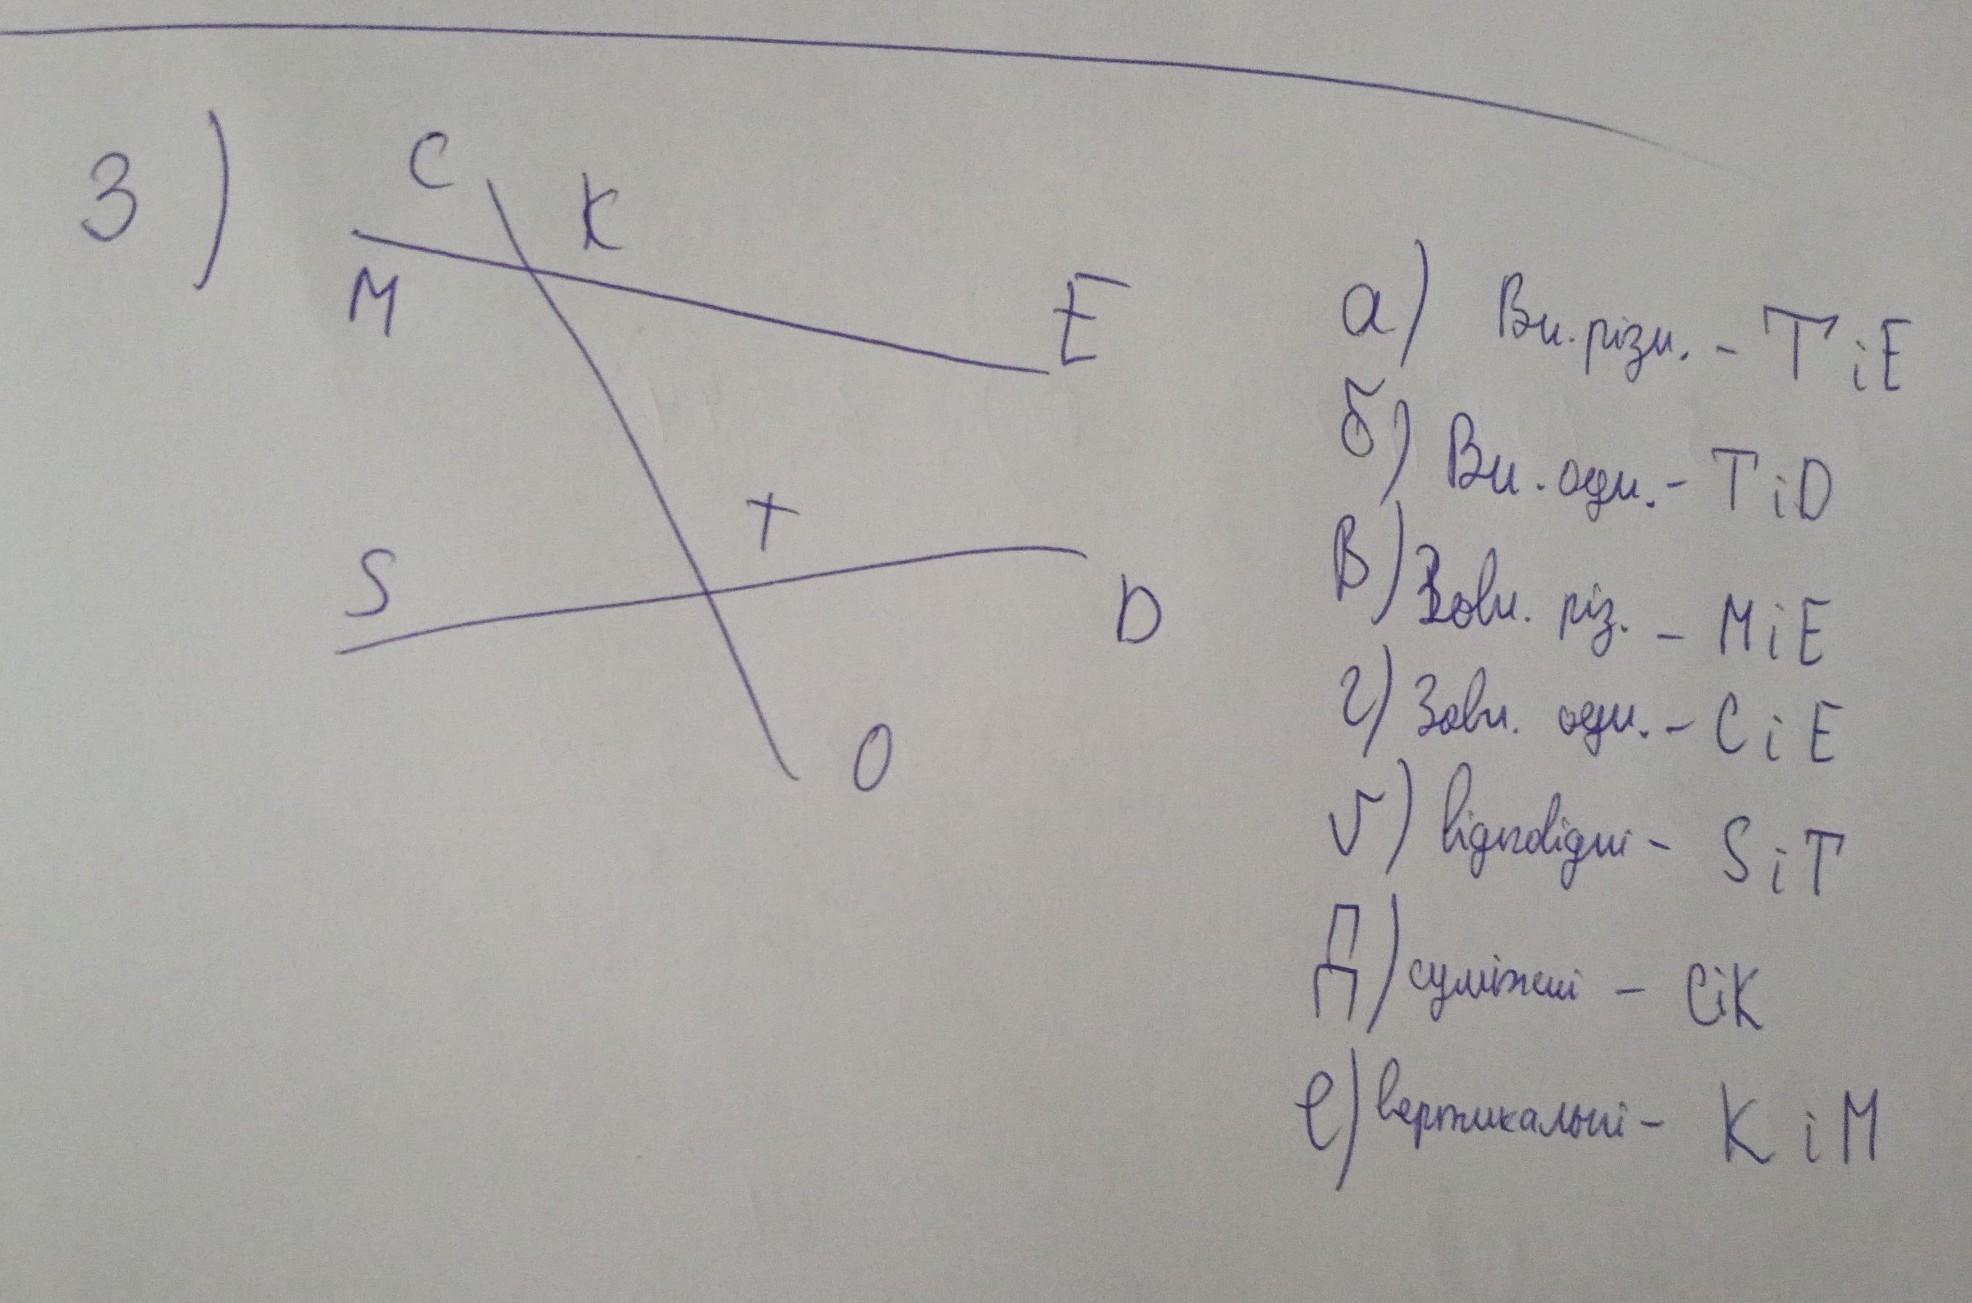 3)
C
K
M
E
S
T
D
O
а) Вн. різн. - T i E
б) Вн. одн. - T i D
в) Зовн. різ. - M i E
г) Зовн. одн. - C i E
г) відповідні - S i T
Д) суміжні - C i K
е) вертикальні - K i M